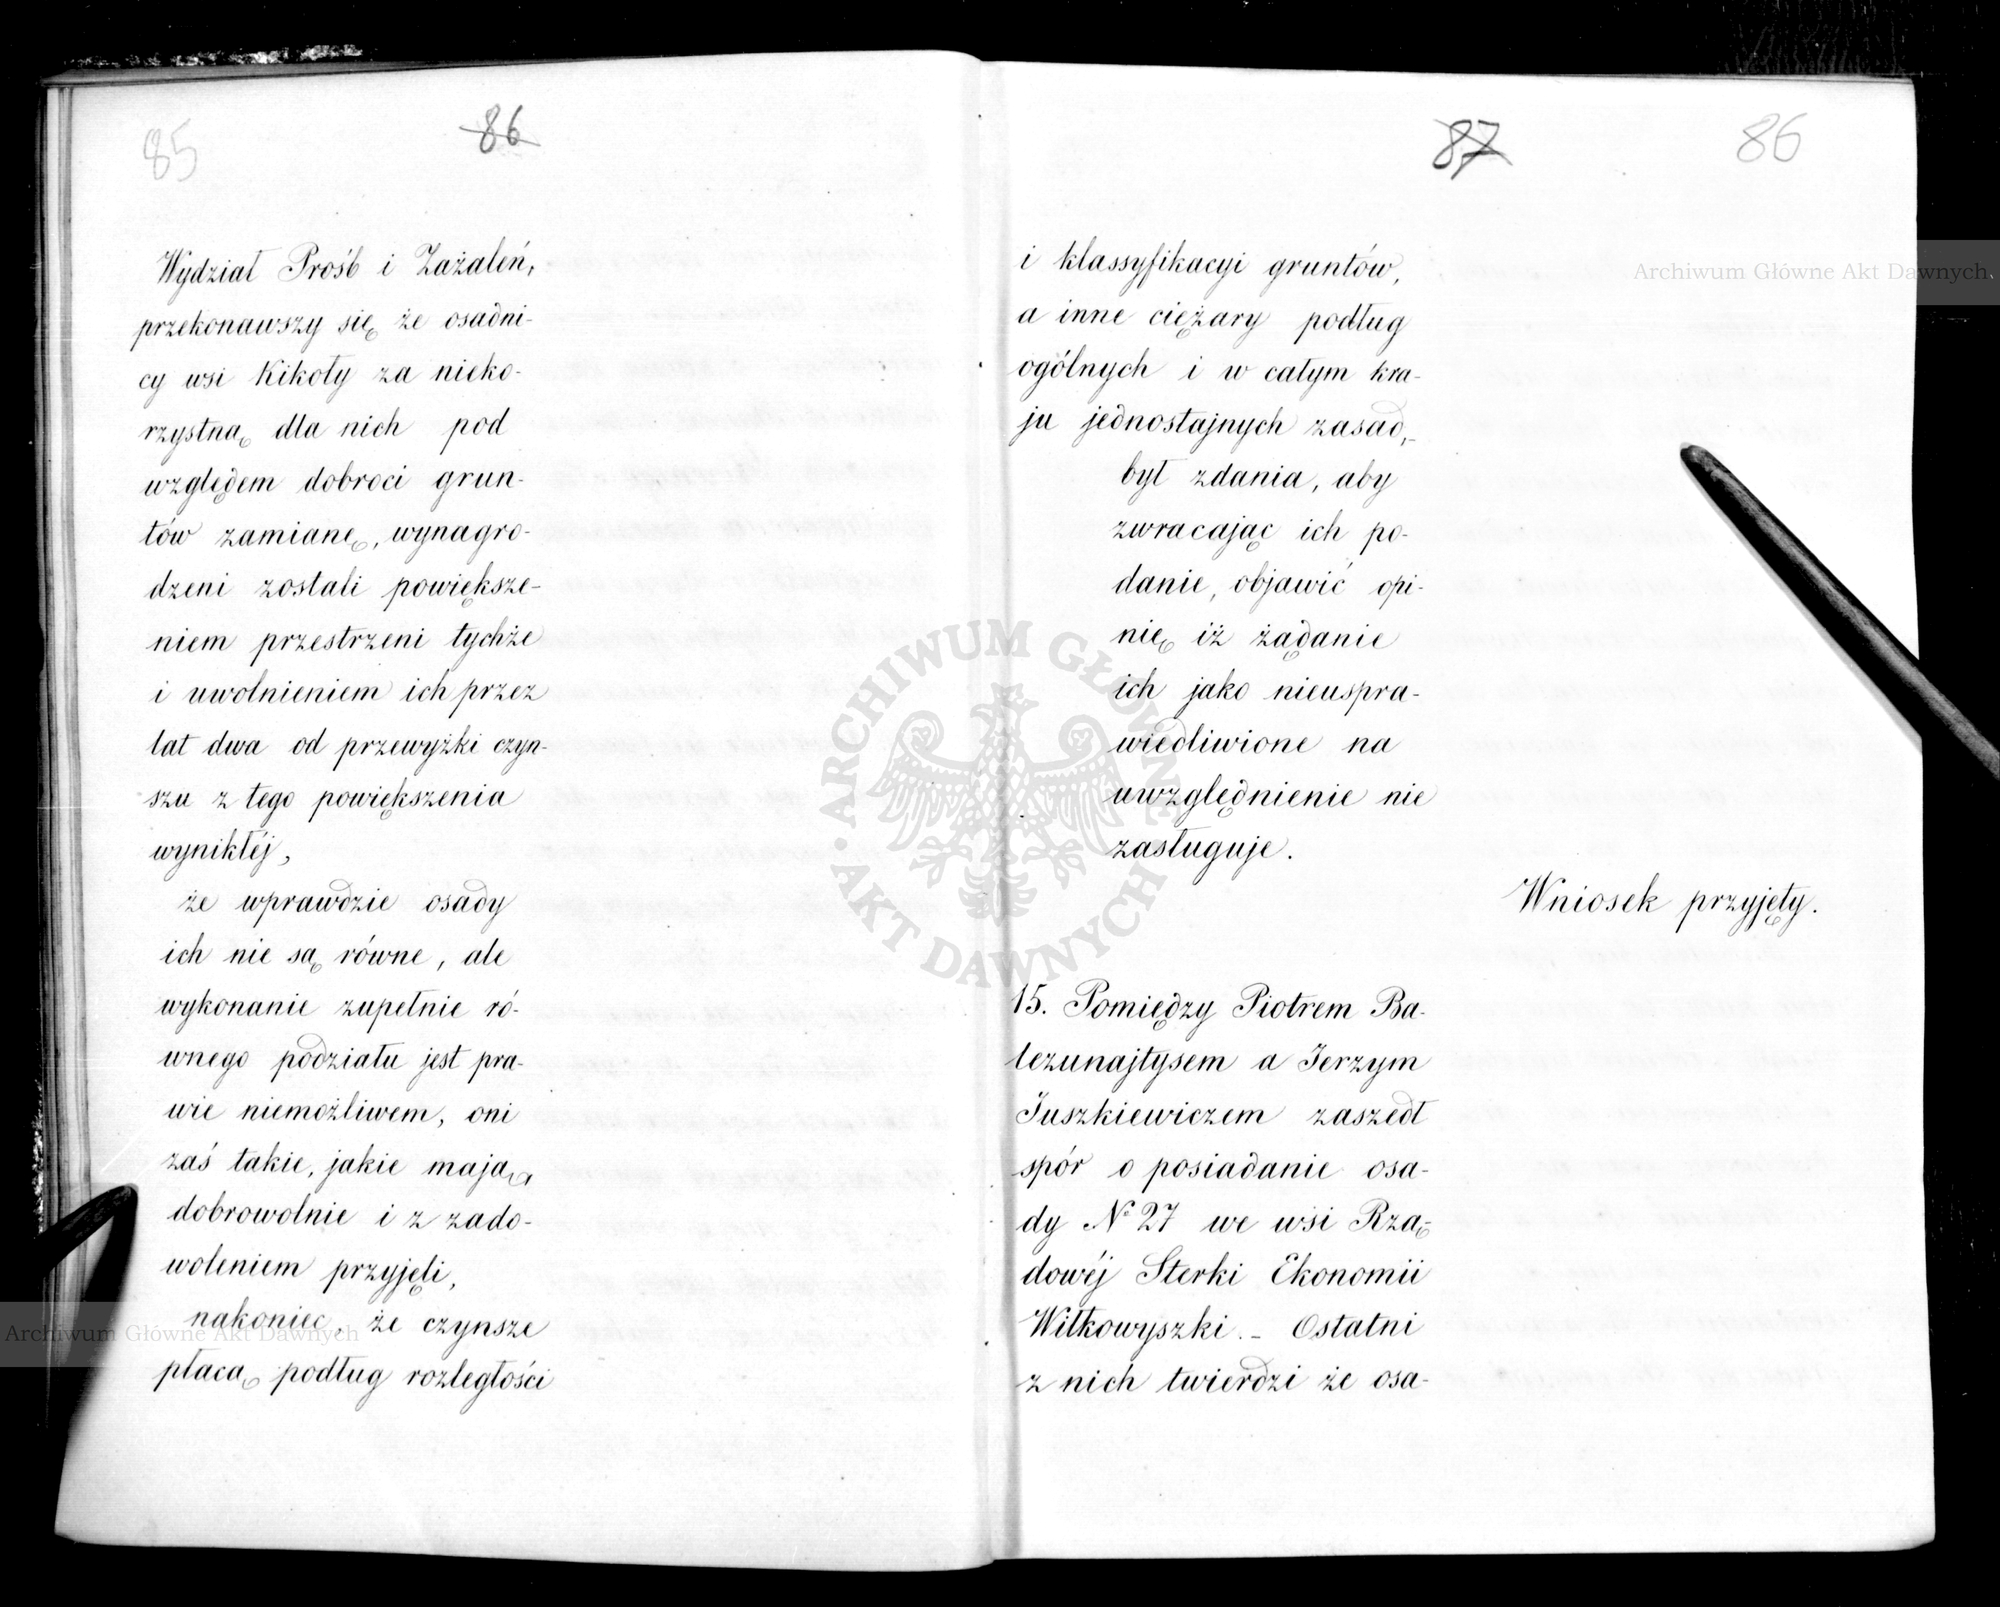 85
86
Wydział Prośb i Zażaleń,
przekonawszy się że osadni-
cy wsi Kikoły za nieko-
rzystną dla nich pod
względem dobroci grun-
tów zamianę, wynagro-
dzeni zostali powiększe-
niem przestrzeni tychże
i uwolnieniem ich przez
lat dwa od przewyżki czyn-
szu z tego powiększenia
wynikłéj,
że wprawdzie osady
ich nie są równe, ale
wykonanie zupełnie ró-
wnego podziału jest pra-
wie niemożliwem, oni
zaś takie, jakie mają,
dobrowolnie i z zado-
woleniem przyjęli,
nakoniec, że czynsze
płacą podług rozległości
Archiwum Główne Akt Dawnych
87
86
i klassyfikacyi gruntów,
a inne ciężary podług
ogólnych i w całym kra-
ju jednostajnych zasad,-
był zdania, aby
zwracając ich po-
danie, objawić opi-
nię iż żądanie
ich jako nieuspra-
wiedliwione na
uwzględnienie nie
zasługuje.
Wniosek przyjęty.
15. Pomiędzy Piotrem Ba-
lezunajtysem a Jerzym
Juszkiewiczem zaszedł
spór o posiadanie osa-
dy No 27 we wsi Rzą-
dowéj Sterki Ekonomii
Wiłkowyszki.- Ostatni
z nich twierdzi że osa-
Archiwum Główne Akt Dawnych
ARCHIWUM GŁÓWNE
AKT DAWNYCH